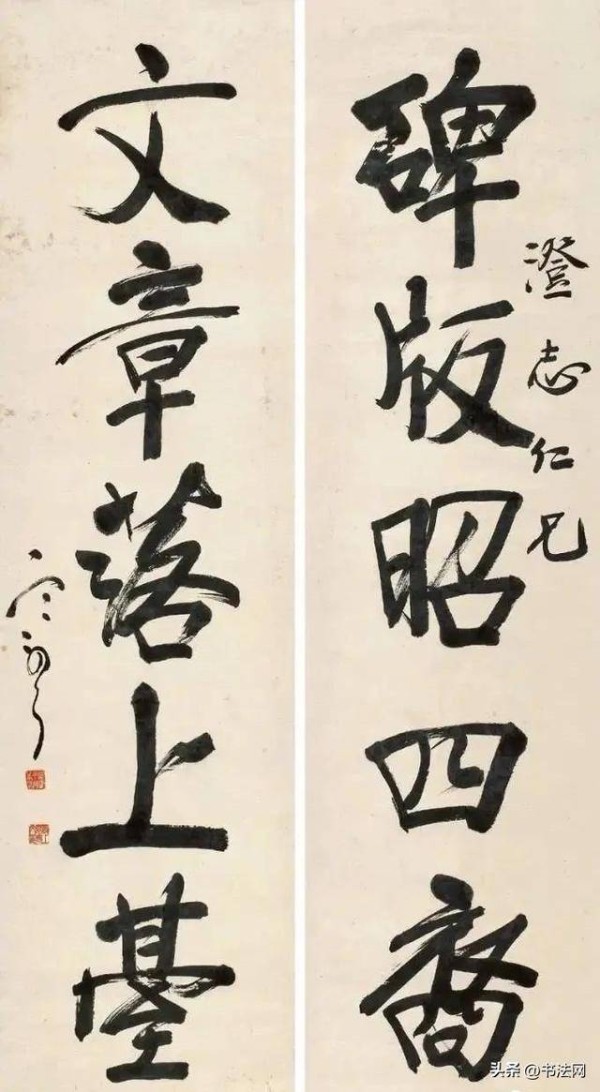 澄志仁兄
碑版昭四裔
文章落上臺
头条 @书法网